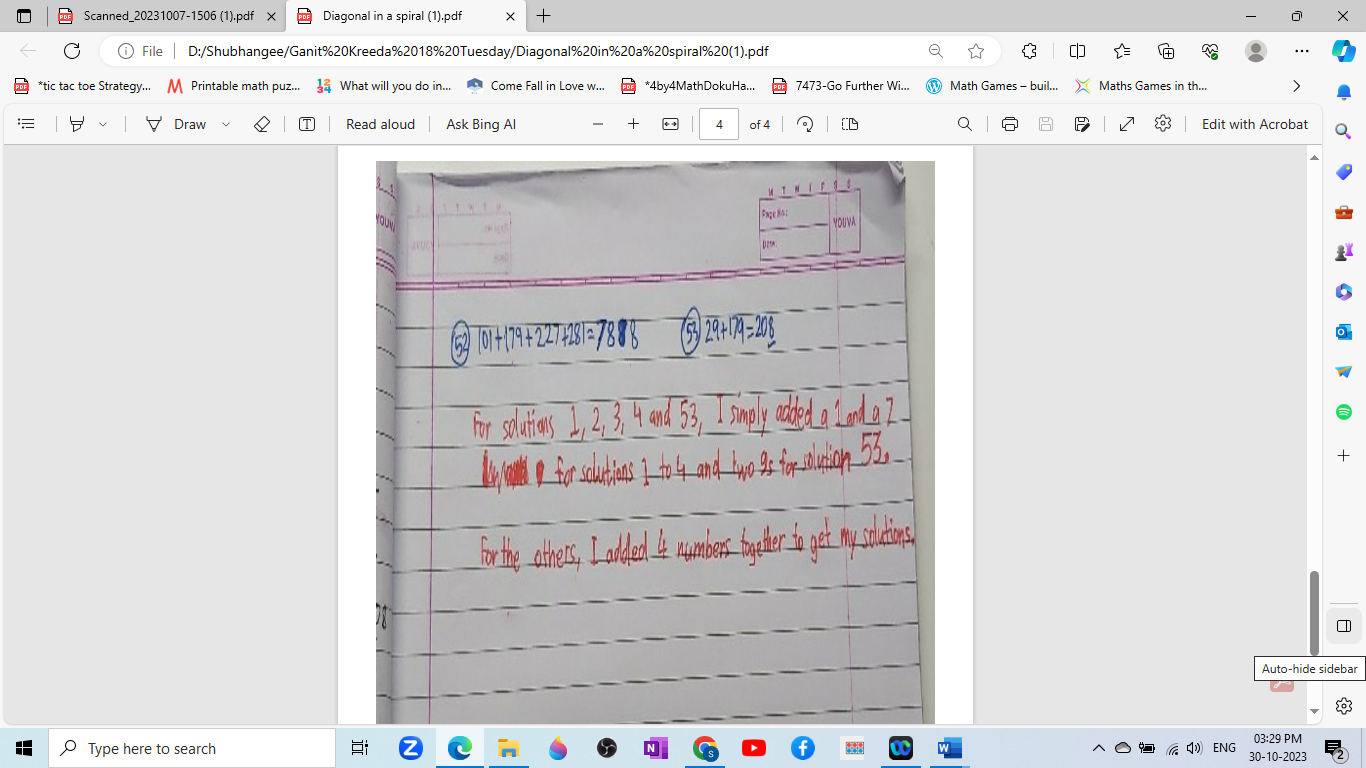 Scanned_20231007-1506 (1).pdf
Diagonal in a spiral (1).pdf
File
D:/Shubhangee/Ganit%20Kreeda%2018%20Tuesday/Diagonal%20in%20a%20spiral%20(1).pdf
*tic tac toe Strategy...
Printable math puz...
What will you do in...
Come Fall in Love w...
*4by4MathDokuHa...
7473-Go Further Wi...
Math Games – buil...
Maths Games in th...
Draw
Read aloud
Ask Bing AI
4 of 4
Edit with Acrobat
M T W T F S S
Page No.:
Date:
YOUVA
YOUVA
52 101+179+227+281=788 8
53 29+179=208
For solutions 1, 2, 3, 4 and 53, I simply added a 1 and a 7
for solutions 1 to 4 and two 9s for solution 53.
For the others, I added 4 numbers together to get my solutions.
Auto-hide sidebar
Type here to search
ENG
03:29 PM
30-10-2023
2